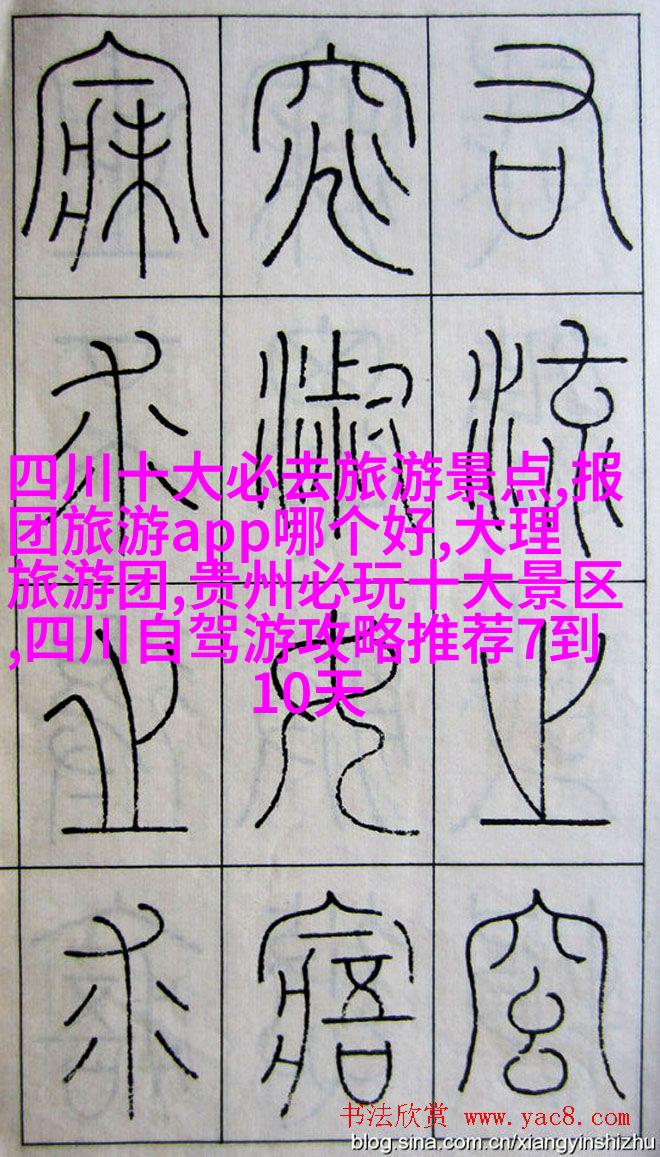 右流之窈
窕淑女寤
寐求之求
四川十大必去旅游景点,报
团旅游app哪个好,大理
旅游团,贵州必玩十大景区
,四川自驾游攻略推荐7到
10天
书法欣赏 www.yac8.com
blog.sina.com.cn/xiangyinshizhu